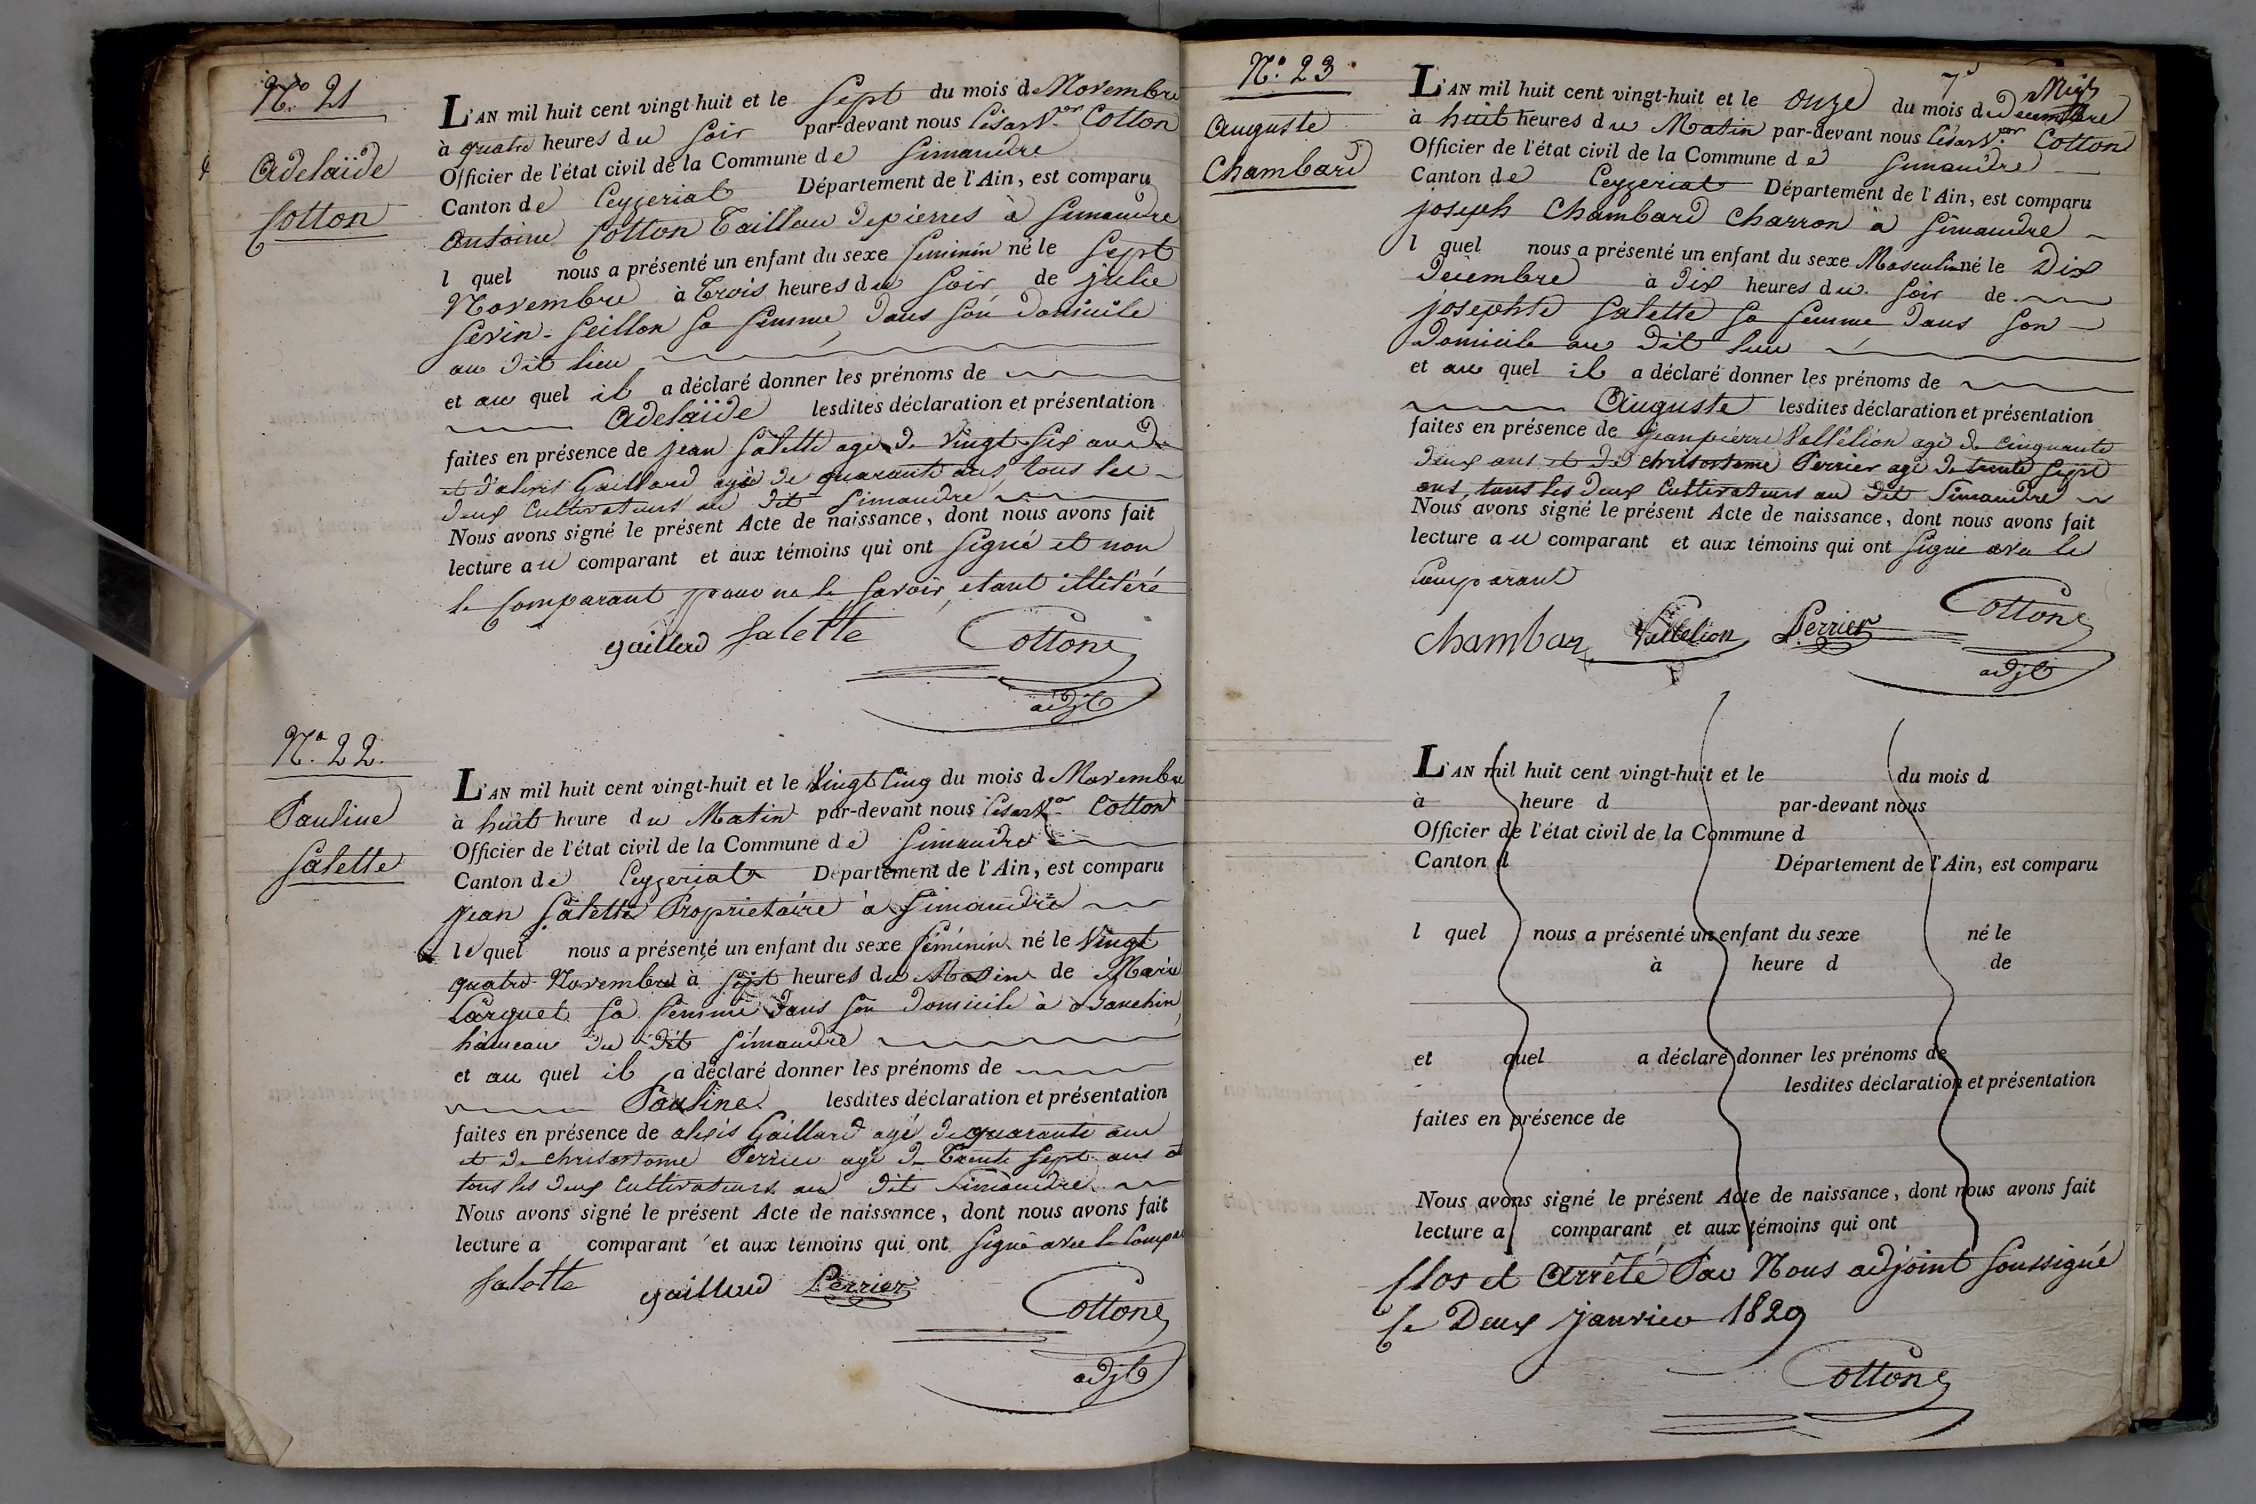 N.º 21
Adelaïde
Cotton
L'AN mil huit cent vingt-huit et le Sept du mois de Novembre
à quatre heures du Soir par-devant nous César V.or Cotton
Officier de l'état civil de la Commune de Simandre
Canton de Ceyzeriat Département de l'Ain, est comparu
Antoine Cotton Tailleur de pierres à Simandre
l quel nous a présenté un enfant du sexe féminin né le Sept
Novembre à Trois heures du Soir de julie
Sevin-Seillon sa femme, dans son domicile
au dit lieu
et au quel il a déclaré donner les prénoms de
Adelaïde lesdites déclaration et présentation
faites en présence de jean Salette agé de vingt Six ans
et d'alexis Gaillard agé de quarante ans, tous les
deux Cultivateurs au dit Simandre
Nous avons signé le présent Acte de naissance, dont nous avons fait
lecture au comparant et aux témoins qui ont Signé et non
le Comparant pour ne le Savoir étant illitéré
gaillard Salette Cotton
adjt
N.º 22.
Pauline
Salette
L'AN mil huit cent vingt-huit et le Vingt Cinq du mois de Novembre
à huit heure du Matin par-devant nous César V.or Cotton
Officier de l'état civil de la Commune de Simandre
Canton de Ceyzeriat Département de l'Ain, est comparu
jean Salette Proprietaire à Simandre
le quel nous a présenté un enfant du sexe féminin né le Vingt
quatre Novembre à Sept heures du Matin de Marie
Larguet sa femme dans son domicile à
hameau du dit Simandre
et au quel il a déclaré donner les prénoms de
Pauline lesdites déclaration et présentation
faites en présence de alexis Gaillard agé de quarante ans
et de chrisostome Perrier agé de Trente Sept ans
tous les deux Cultivateurs au dit Simandre
Nous avons signé le présent Acte de naissance, dont nous avons fait
lecture a comparant et aux témoins qui ont Signé avec le Compa
Salette gaillard Perrier
Cotton
adjt
N.º 23
Auguste
Chambard
L'AN mil huit cent vingt-huit et le onze du mois de Decembre
à huit heures du Matin par-devant nous César V.or Cotton
Officier de l'état civil de la Commune de Simandre
Canton de Ceyzeriat Département de l'Ain, est comparu
joseph Chambard Charron à Simandre
l quel nous a présenté un enfant du sexe Masculin né le Dix
Décembre à Dix heures du Soir de
josephte Salette sa femme dans son
domicile au dit lieu
et au quel il a déclaré donner les prénoms de
Auguste lesdites déclaration et présentation
faites en présence de jean pierre Vallélion agé de cinquante
deux ans et de chrisostome Perrier agé de trente Sept
ans, tous les deux Cultivateurs au dit Simandre
Nous avons signé le présent Acte de naissance, dont nous avons fait
lecture au comparant et aux témoins qui ont Signé avec le
Comparant
Chambar Vallelion Perrier Cotton
adjt
L'AN mil huit cent vingt-huit et le du mois d
à heure d par-devant nous
Officier de l'état civil de la Commune d
Canton d Département de l'Ain, est comparu
l quel nous a présenté un enfant du sexe né le
à heure d de
et quel a déclaré donner les prénoms de
lesdites déclaration et présentation
faites en présence de
Nous avons signé le présent Acte de naissance, dont nous avons fait
lecture a comparant et aux témoins qui ont
Clos et Arrêté Par Nous adjoint Soussigné
Le Deux janvier 1829
Cotton